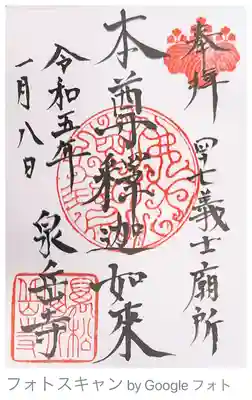 奉拝
四十七義士廟所
本尊釋迦如来
令和五年
一月八日
泉岳寺
フォトスキャン by Google フォト